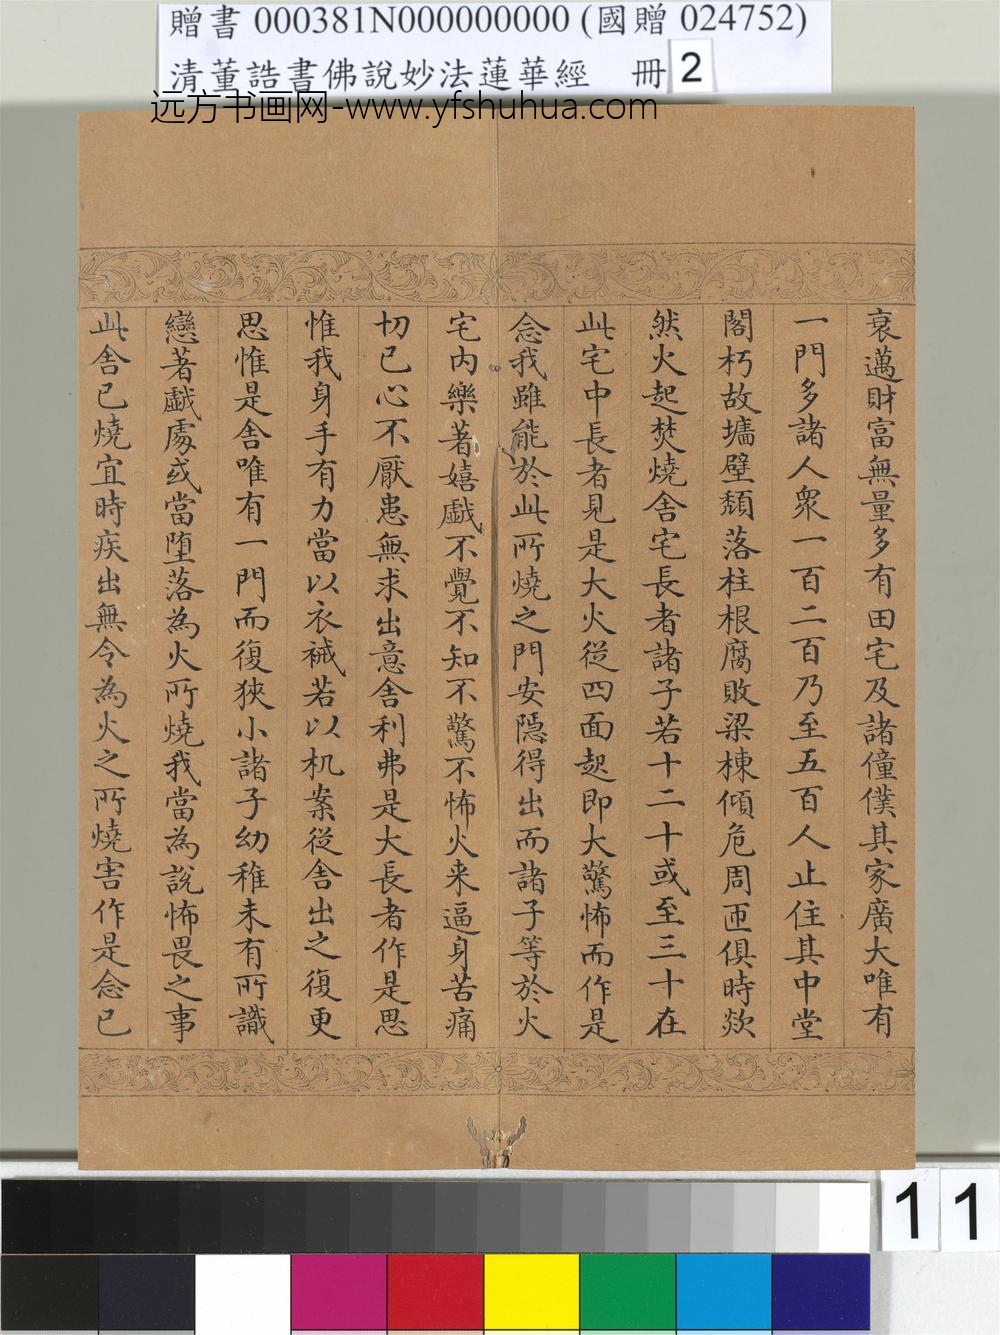 贈書 000381N000000000 (國贈 024752)
清董誥書佛說妙法蓮華經 冊 2
远方书画网-www.yfshuhua.com
衰邁財富無量多有田宅及諸僮僕其家廣大唯有
一門多諸人衆一百二百乃至五百人止住其中堂
閣朽故墻壁頹落柱根腐敗梁棟傾危周匝俱時欻
然火起焚燒舍宅長者諸子若十二十或至三十在
此宅中長者見是大火從四面起即大驚怖而作是
念我雖能於此所燒之門安隱得出而諸子等於火
宅内樂著嬉戲不覺不知不驚不怖火来逼身苦痛
切已心不厭患無求出意舍利弗是大長者作是思
惟我身手有力當以衣裓若以机案從舍出之復更
思惟是舍唯有一門而復狹小諸子幼稚未有所識
戀著戲處或當墮落為火所燒我當為說怖畏之事
此舍已燒宜時疾出無令為火之所燒害作是念已
11